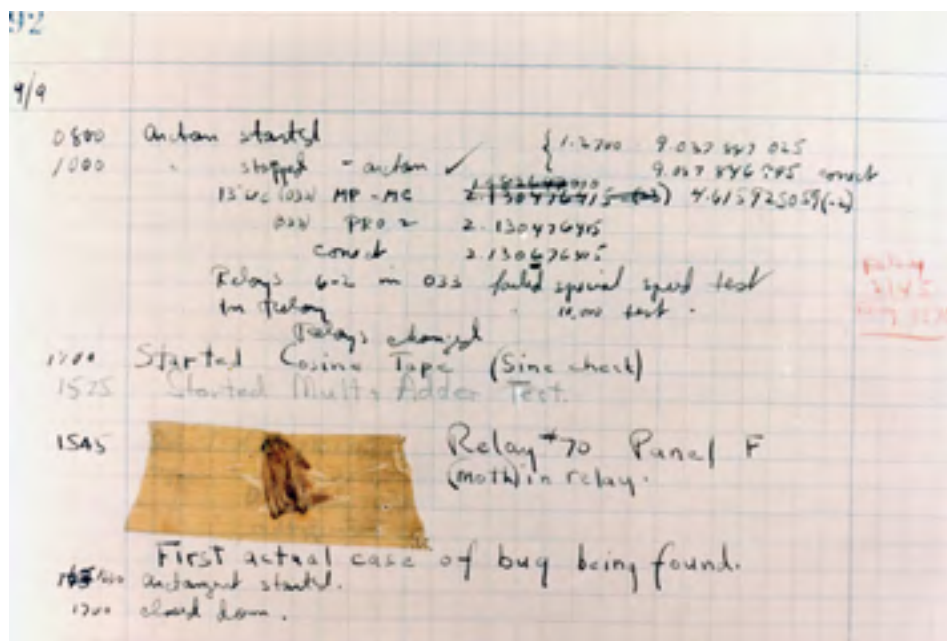 92
9/9
0800 antan started
1000 " stopped - antan ✓ { 1.2700 9.037 847 025
9.037 846 995 correct
13"uc (032) MP - MC 2.130476415 (-3) 4.615925059 (-2)
(033) PRO 2 2.130476415
correct 2.130676415
Relays 6-2 in 033 failed special speed test
in Relay " 10,000 test .
Relays changed
1100 Started Cosine Tape (Sine check)
1525 Started Mult + Adder Test.
1545 Relay #70 Panel F
(moth) in relay.
First actual case of bug being found.
antangent started.
1700 closed down.
Relay
2145